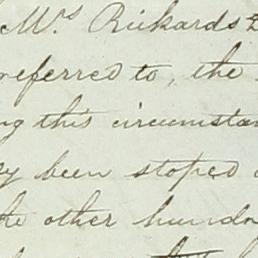 Mrs Rickards
referred to, the
this circumstan
been stoped
other hundr